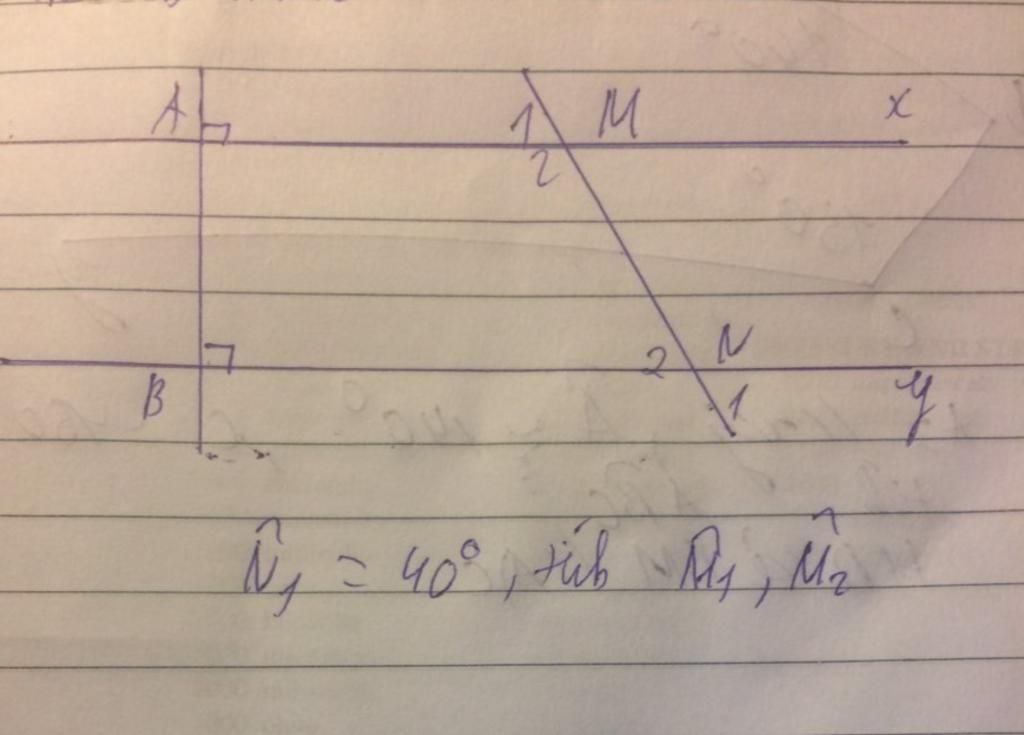 A 1 M x
2
2 N
B 1 y
N̂₁ = 40°, tính M̂₁, M̂₂